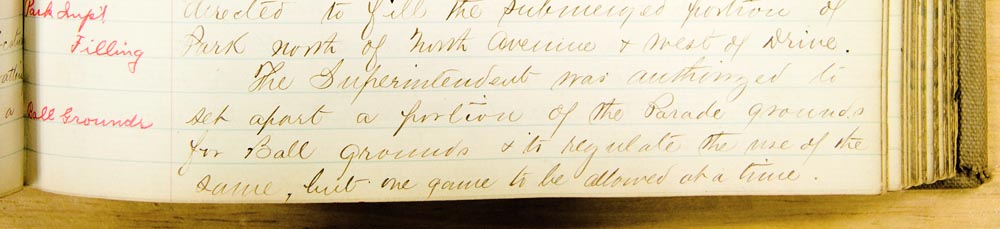 Park Imp't
directed to fill the submerged portion of
Filling
Park north of North Avenue & West of Drive.
The Superintendent was authorized to
a
Ball Grounds
set apart a portion of the Parade grounds
for Ball grounds & to regulate the use of the
same, but one game to be allowed at a time.